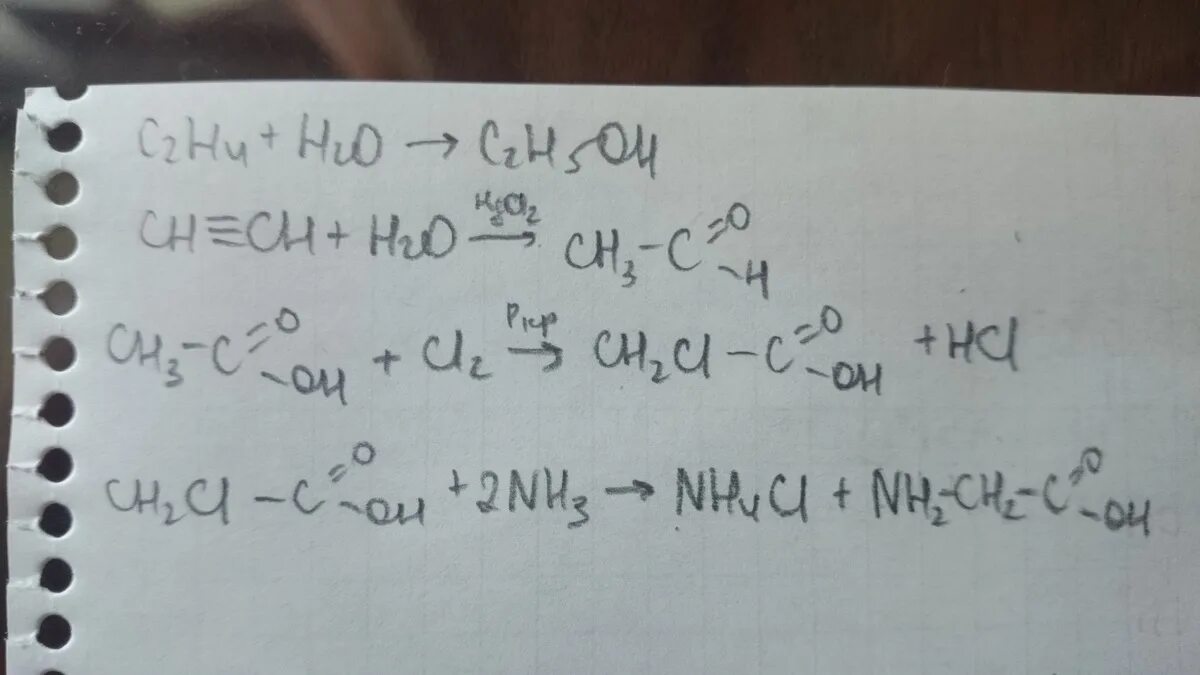 C₂H₄ + H₂O → C₂H₅OH
CH≡CH + H₂O —HgCl₂→ CH₃-C(=O)-H
CH₃-C(=O)-OH + Cl₂ —Pкр→ CH₂Cl-C(=O)-OH + HCl
CH₂Cl-C(=O)-OH + 2NH₃ → NH₄Cl + NH₂-CH₂-C(=O)-OH